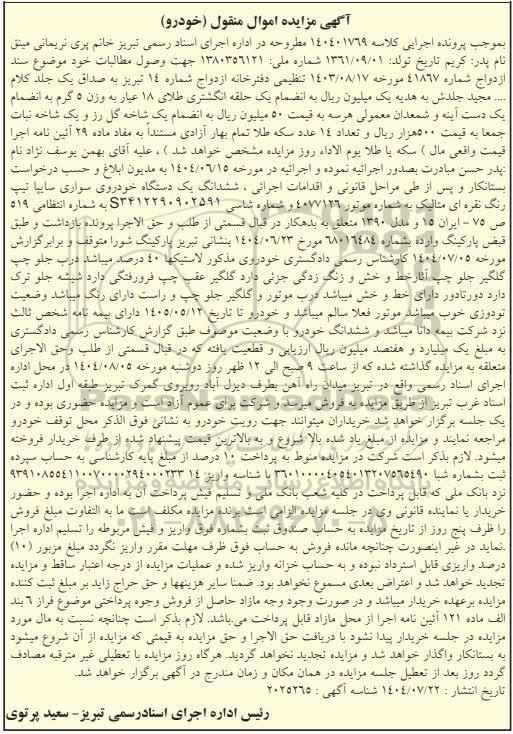 آگهی مزایده اموال منقول (خودرو)
بموجب پرونده اجرایی کلاسه ۱۴۰۴۰۱۷۶۹ مطروحه در اداره اجرای اسناد رسمی تبریز خانم پری نریمانی مینق
نام پدر: کریم تاریخ تولد: ۱۳۶۱/۰۹/۰۱ شماره ملی: ۱۳۸۰۳۵۶۱۲۱ جهت وصول مطالبات خود موضوع سند
ازدواج شماره ۴۱۸۶۷ مورخه ۱۴۰۳/۰۸/۱۷ تنظیمی دفترخانه ازدواج شماره ۱۴ تبریز به صداق یک جلد کلام
.... مجید جلدش به هدیه یک میلیون ریال به انضمام یک حلقه انگشتری طلای ۱۸ عیار به وزن ۵ گرم به انضمام
یک دست آینه و شمعدان معمولی هرسه به قیمت ۵۰ میلیون ریال به انضمام یک شاخه گل رز و یک شاخه نبات
جمعا به قیمت ۵۰۰هزار ریال و تعداد ۱۴ عدد سکه طلا تمام بهار آزادی مستنداً به مفاد ماده ۲۹ آئین نامه اجرا
قیمت واقعی مال ) سکه یا طلا یوم الاداء روز مزایده مشخص خواهد شد ) ، علیه آقای بهمن یوسف نژاد نام
پدر: حسن مبادرت بصدور اجرائیه نموده و اجرائیه در مورخه ۱۴۰۴/۰۶/۱۵ به مدیون ابلاغ و حسب درخواست
بستانکار و پس از طی مراحل قانونی و اقدامات اجرائی ، ششدانگ یک دستگاه خودروی سواری سایپا تیپ
رنگ نقره ای متالیک به شماره موتور ۴۰۷۷۱۲۶ و شماره شاسی S۳۴۱۲۲۹۰۹۰۲۵۹۱ به شماره انتظامی ۵۱۹
ص ۷۵ - ایران ۱۵ و مدل ۱۳۹۰ متعلق به بدهکار در قبال قسمتی از طلب و حق الاجرا پرونده بازداشت و طبق
قبض پارکینگ وارده بشماره ۶۸۰۱۶۴۸۴ مورخ ۱۴۰۴/۰۶/۲۳ بنشانی تبریز پارکینگ شورا متوقف و برابرگزارش
مورخه ۱۴۰۴/۰۷/۰۵ کارشناس رسمی دادگستری خودروی مذکور لاستیکها ۴۰ درصد میباشد درب جلو چپ
گلگیر جلو چپ آثار خط و خش و زنگ زدگی جزئی دارد گلگیر عقب چپ فرورفتگی دارد شیشه جلو ترک
دارد دورتادور دارای خط و خش میباشد درب موتور و گلگیر جلو چپ و راست دارای رنگ میباشد وضعیت
تودوزی خوب میباشد موتور فعلا سالم میباشد و خودرو تا تاریخ ۱۴۰۵/۰۵/۱۲ دارای بیمه نامه شخص ثالث
نزد شرکت بیمه دانا میباشد و ششدانگ خودرو با وضعیت موصوف طبق گزارش کارشناس رسمی دادگستری
به مبلغ یک میلیارد و هفتصد میلیون ریال ارزیابی و قطعیت یافته که در قبال قسمتی از طلب وحق الاجرای
متعلقه به مزایده گذاشته شده که از ساعت ۹ صبح الی ۱۲ ظهر روز دوشنبه مورخه ۱۴۰۴/۰۸/۰۵ در محل اداره
اجرای اسناد رسمی واقع در تبریز میدان راه آهن بطرف دیزل آباد روبروی گمرک تبریز طبقه اول اداره ثبت
اسناد غرب تبریز از طریق مزایده به فروش میرسد و شرکت برای عموم آزاد است و مزایده حضوری بوده و در
یک جلسه برگزار خواهد شد خریداران میتوانند جهت رویت خودرو به نشانی فوق الذکر محل توقف خودرو
مراجعه نمایند و مزایده از مبلغ یاد شده بالا شروع و به بالاترین قیمت پیشنهاد شده از طرف خریدار فروخته
میشود. لازم بذکر است شرکت در مزایده منوط به پرداخت ۱۰ درصد از مبلغ پایه کارشناسی به حساب سپرده
ثبت بشماره شبا ۳۶۰۱۰۰۰۰۴۰۵۴۰۱۳۲۰۷۵۶۵۴۹۰ با شناسه واریز ۱۴ ۹۳۹۱۰۸۵۵۴۱۱۰۰۷۰۰۰۰۲۹۴۰۰۰۲۳۳
نزد بانک ملی که قابل پرداخت در کلیه شعب بانک ملی و تسلیم فیش پرداخت آن به اداره اجرا بوده و حضور
خریدار یا نماینده قانونی وی در جلسه مزایده الزامی است. برنده مزایده مکلف است ما به التفاوت مبلغ فروش
را ظرف پنج روز از تاریخ مزایده به حساب صندوق ثبت بشماره فوق واریز و فیش مربوطه را تسلیم اداره اجرا
.نماید در غیر اینصورت چنانچه مانده فروش به حساب فوق ظرف مهلت مقرر واریز نگردد مبلغ مزبور (۱۰)
درصد واریزی قابل استرداد نبوده و به حساب خزانه واریز شده و عملیات مزایده از درجه اعتبار ساقط و مزایده
تجدید خواهد شد و اعتراض بعدی مسموع نخواهد بود. ضمنا سایر هزینهها و حق حراج زاید بر مبلغ ثبت کننده
مزایده برعهده خریدار میباشد و در صورت وجود وجه مازاد حاصل از فروش وجوه پرداختی موضوع فراز ۶ بند
الف ماده ۱۲۱ آئین نامه اجرا از محل مازاد قابل پرداخت می.باشد. لازم بذکر است چنانچه نسبت به مال مورد
مزایده در جلسه خریدار پیدا نشود با دریافت حق الاجرا و حق مزایده به قیمتی که مزایده از آن شروع میشود
به بستانکار واگذار خواهد شد و مزایده تجدید نخواهد گردید. هرگاه روز مزایده با تعطیلی غیر مترقبه مصادف
گردد روز بعد از تعطیل جلسه مزایده در همان مکان و زمان مندرج در آگهی برگزار خواهد شد.
تاریخ انتشار : ۱۴۰۴/۰۷/۲۲ شناسه آگهی : ۲۰۲۵۲۶۵
رئیس اداره اجرای اسنادرسمی تبریز- سعید پرتوی